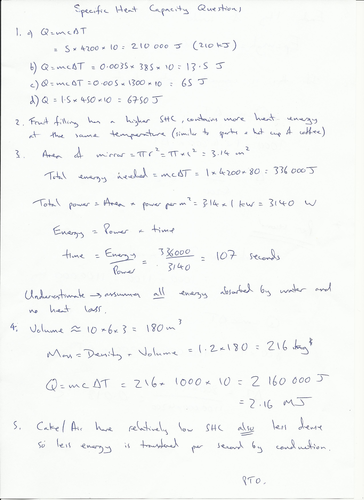 Specific Heat Capacity Questions
1. a) Q=mcΔT
= 5×4200×10 = 210 000 J (210 kJ)
b) Q=mcΔT = 0.0035 × 385 × 10 = 13.5 J
c) Q=mcΔT = 0.005×1300×10 = 65 J
d) Q = 1.5×450×10 = 6750 J
2. Fruit filling has a higher SHC, contains more heat energy
at the same temperature (similar to sparks + hot cup of coffee)
3. Area of mirror = πr² = π×1² = 3.14 m²
Total energy needed = mcΔT = 1×4200×80 = 336000J
Total power = Area × power per m² = 3.14 × 1 kW = 3140 W
Energy = Power × time
time = Energy/Power = 336000/3140 = 107 seconds
Underestimate → assumes all energy absorbed by water and
no heat loss.
4. Volume ≈ 10×6×3 = 180 m³
Mass = Density × Volume = 1.2×180 = 216 kg
Q = mcΔT = 216 × 1000 × 10 = 2 160 000 J
= 2.16 MJ
5. Cake/Air have relatively low SHC also less dense
so less energy is transferred per second by conduction.
PTO.